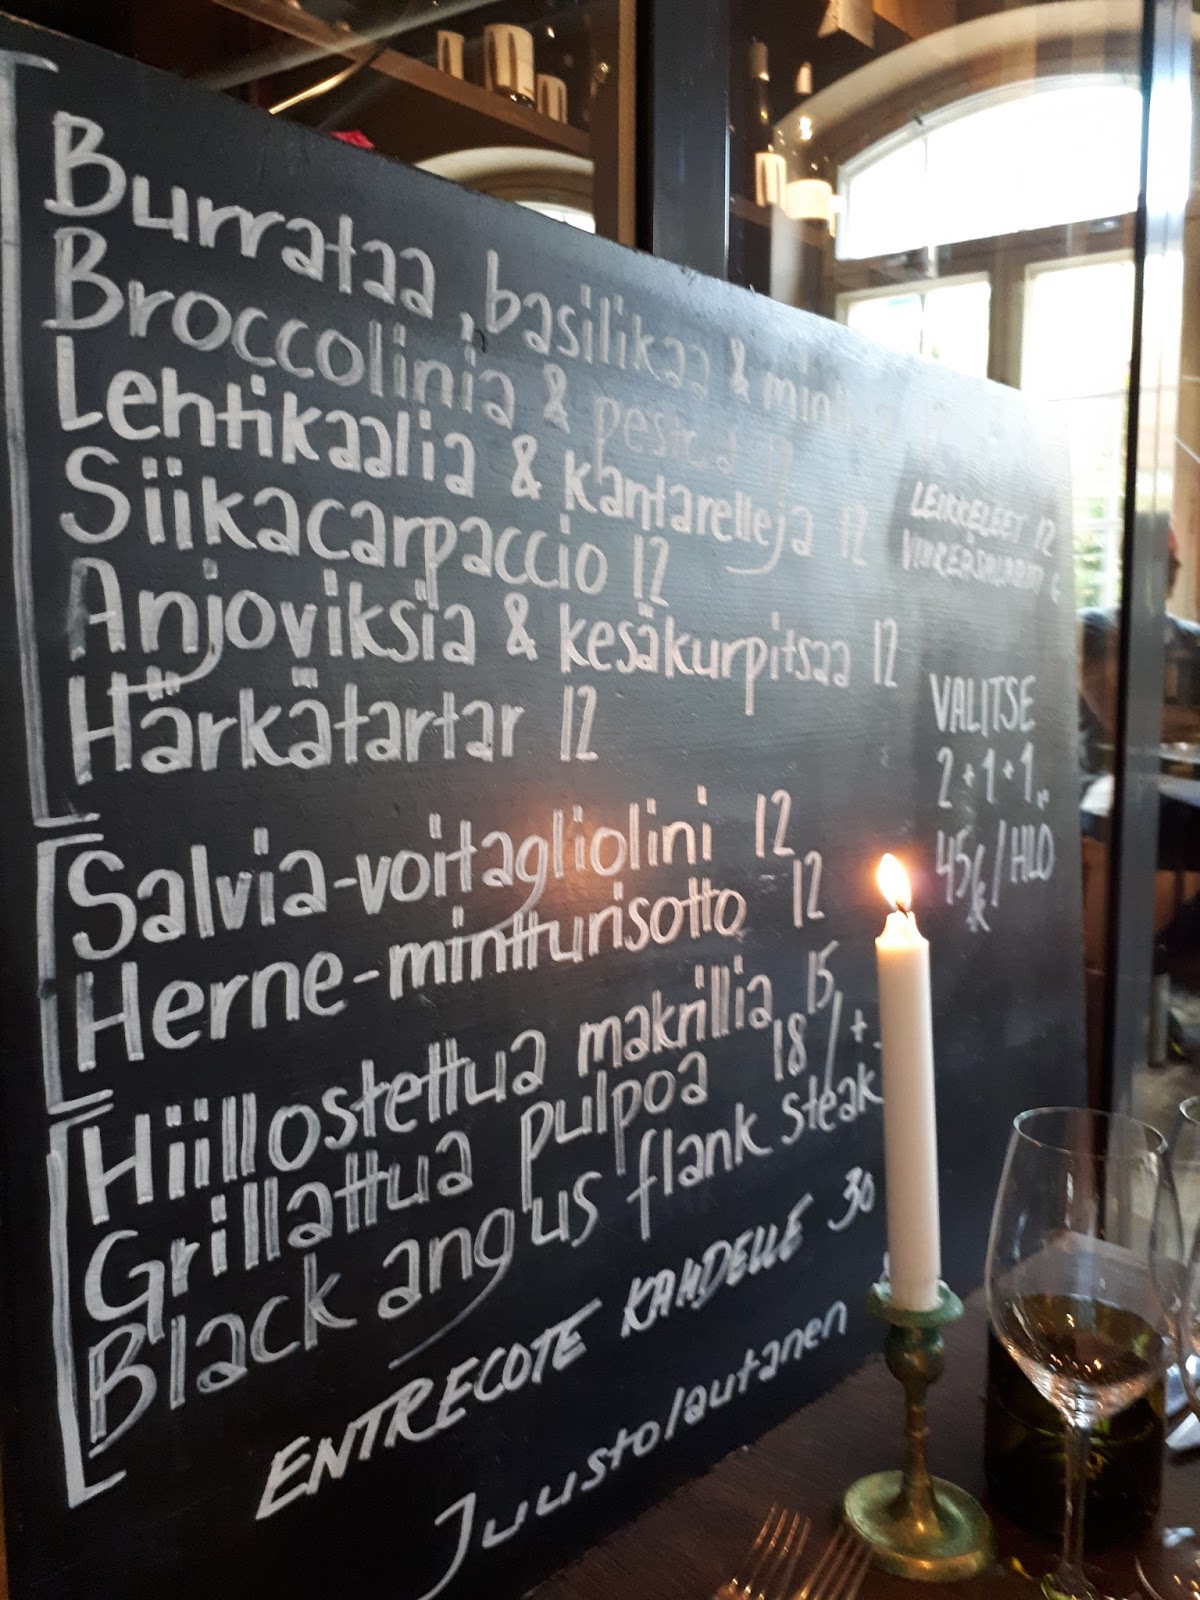 Burrataa, basilikaa & minttua 12
Broccolinia & pestoa 12
Lehtikaalia & kantarelleja 12
Siikacarpaccio 12
Anjoviksia & kesäkurpitsaa 12
Härkätartar 12
Salvia-voitagliolini 12
Herne-minttturisotto 12
Hiillostettua makrillia 15
Grillattua pulpoa 18
Black angus flank steak
ENTRECOTE KAHDELLE 30
Juustolautanen
LEIKKELEET 12
VIHERSALAATTI 6
VALITSE
2+1+1
45€/HLÖ